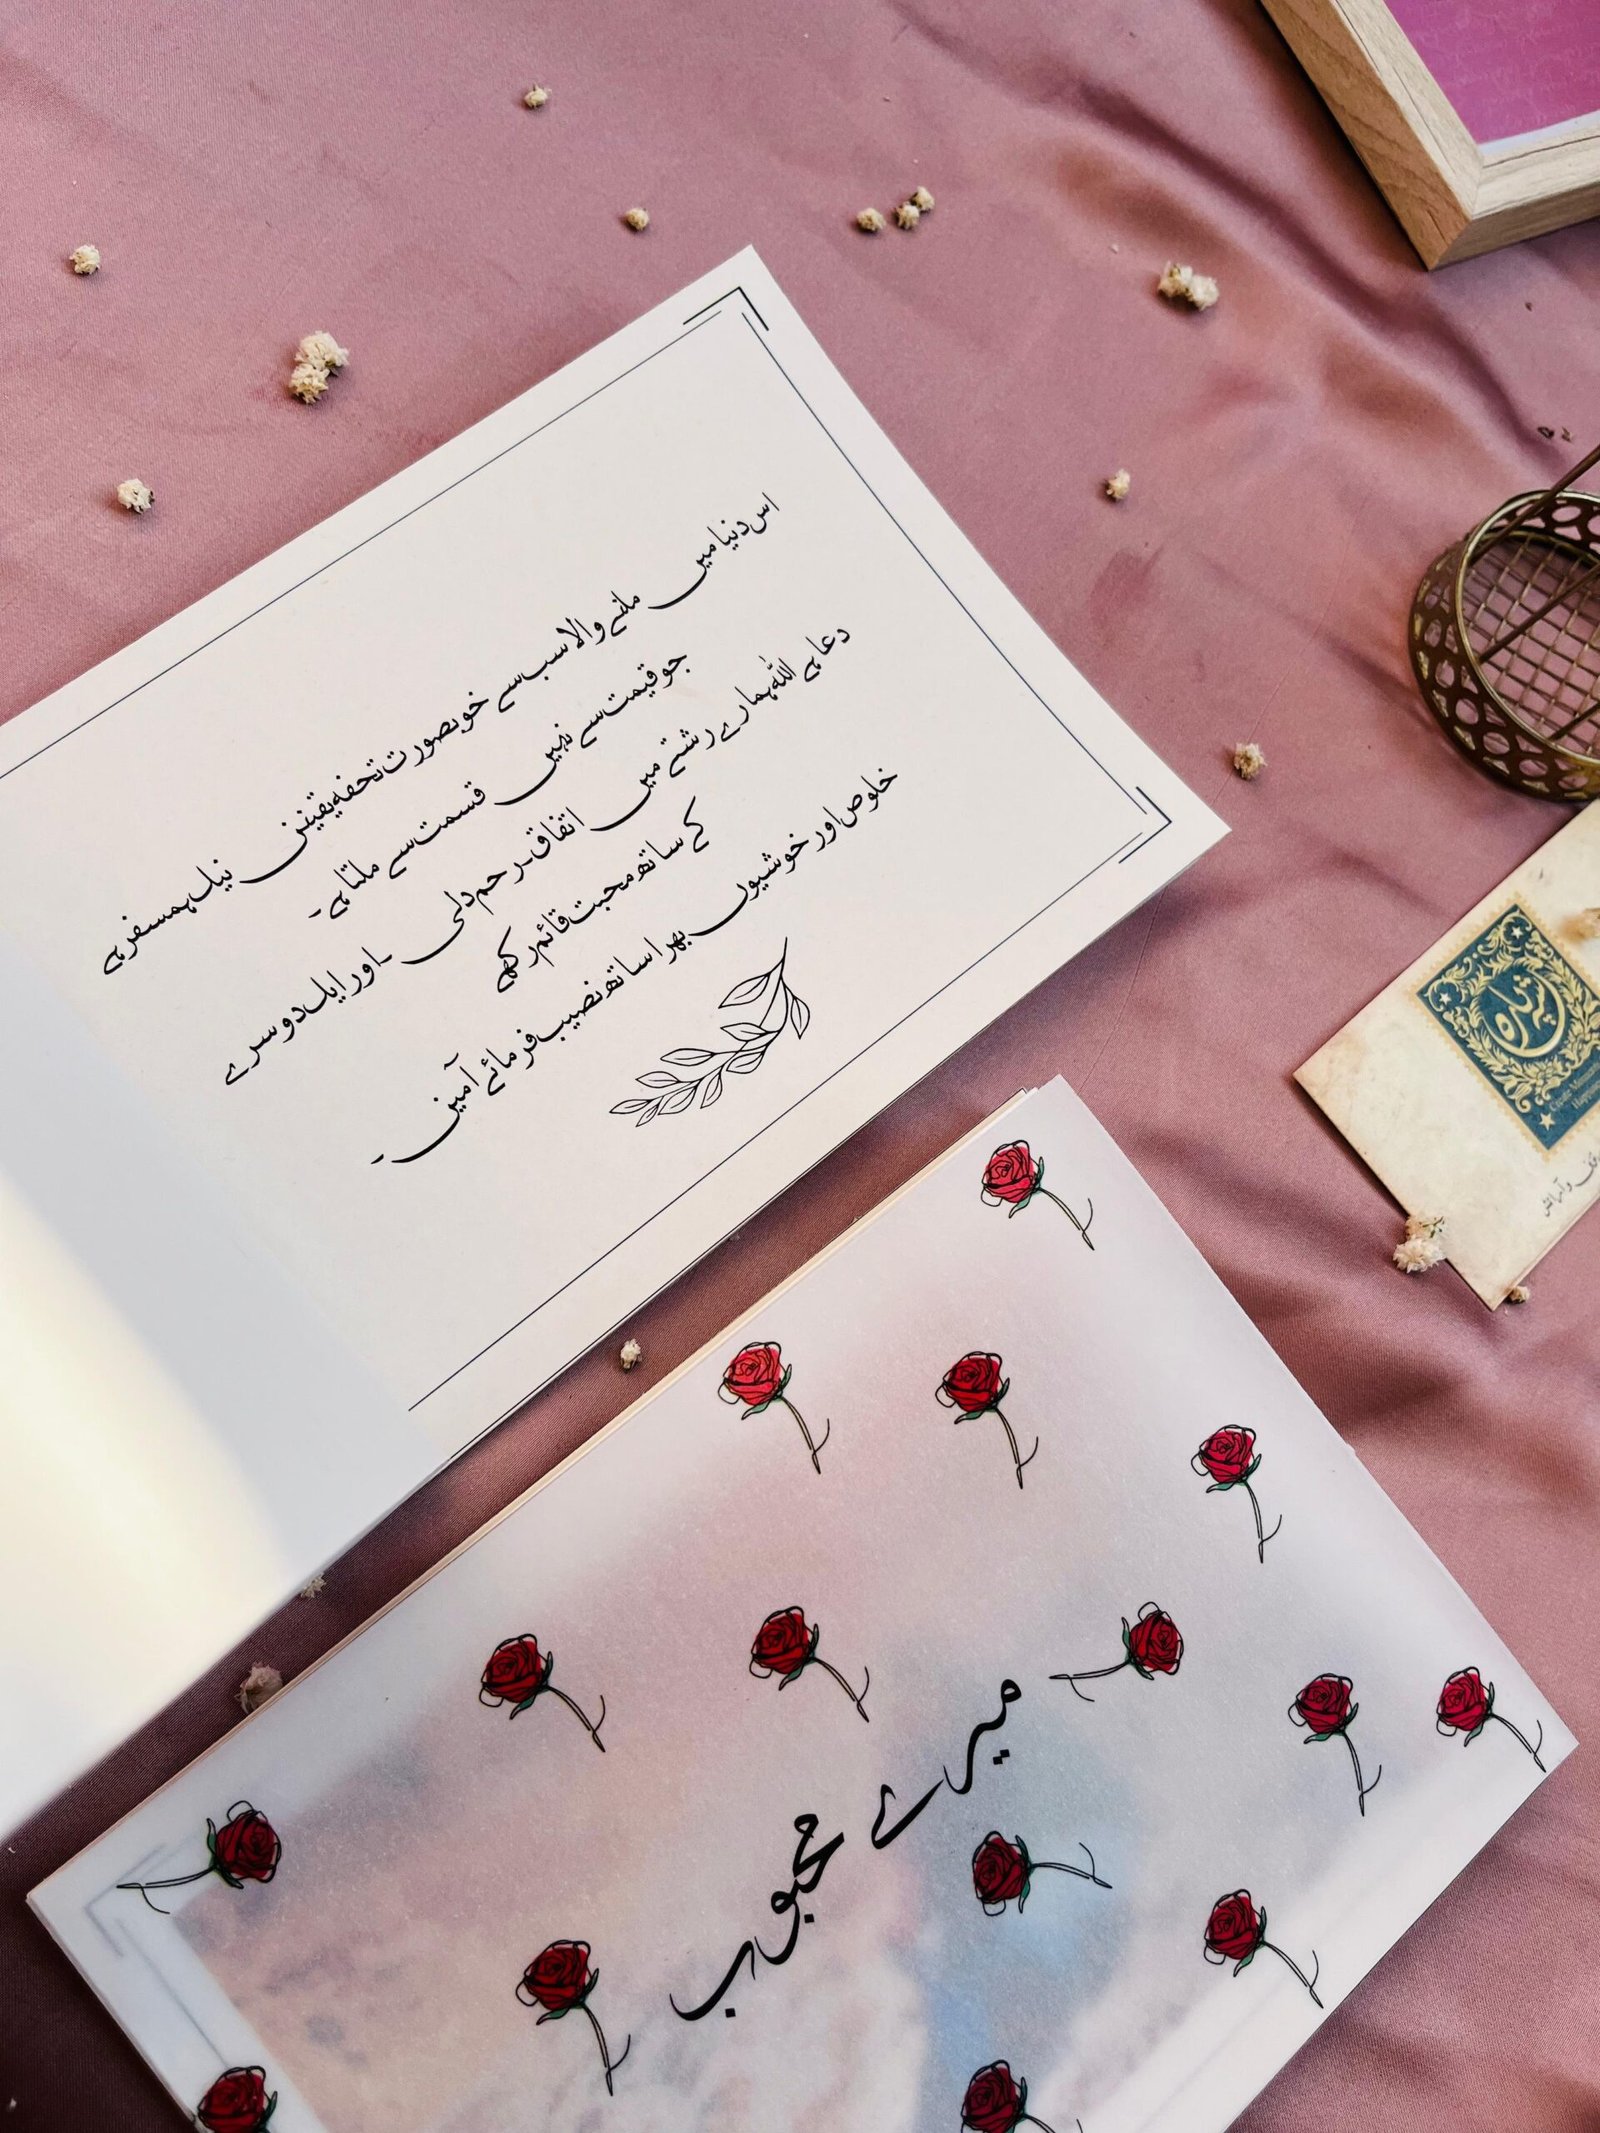 اس دنیا میں ملنے والا سب سے خوبصورت تحفہ یقینن نیک ہمسفر ہے
جو قیمت سے نہیں قسمت سے ملتا ہے۔
دعا ہے اللہ ہمارے رشتے میں اتفاق۔رحم دلی ۔اور ایک دوسرے
کے ساتھ محبت قائم رکھے
خلوص اور خوشیوں بھرا ساتھ نصیب فرمائے آمین۔
میرے محبوب